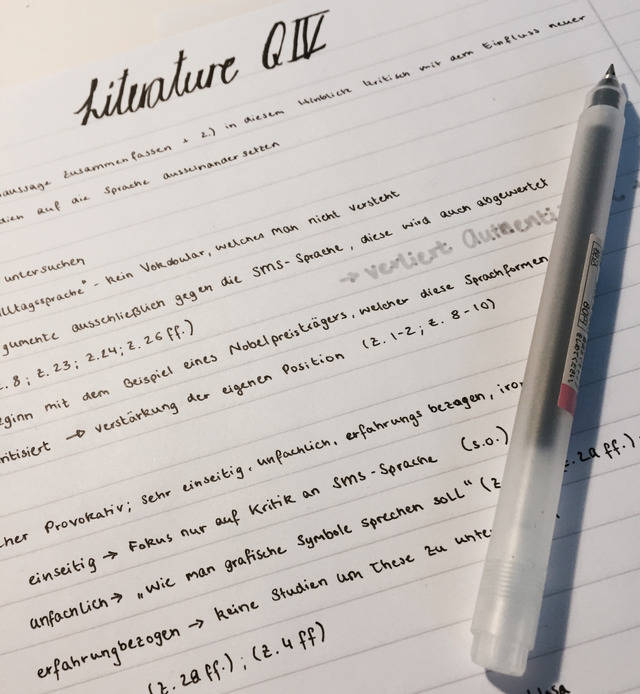 Literature Q IV
aussage zusammenfassen + 2) in diesem Hinblick kritisch mit dem Einfluss neuer
dien auf die Sprache auseinandersetzen
untersuchen
lltagssprache" - kein Vokabular, welches man nicht versteht
gumente ausschließlich gegen die SMS-Sprache, diese wird auch abgewertet
→ verliert Authenti
z. 8; z. 23; z.24; z. 26 ff.)
eginn mit dem Beispiel eines Nobelpreisträgers, welcher diese Sprachformen
ritisiert → verstärkung der eigenen Position (z. 1-2; z. 8-10)
cher Provokativ; sehr einseitig, unfachlich, erfahrungs bezogen, iro
einseitig → Fokus nur auf Kritik an SMS-Sprache (s.o.)
unfachlich → „Wie man grafische Symbole sprechen soll" (z z. 2a ff.)
erfahrungbezogen → keine Studien um These zu unte
(z. 2a ff.); (z. 4 ff)